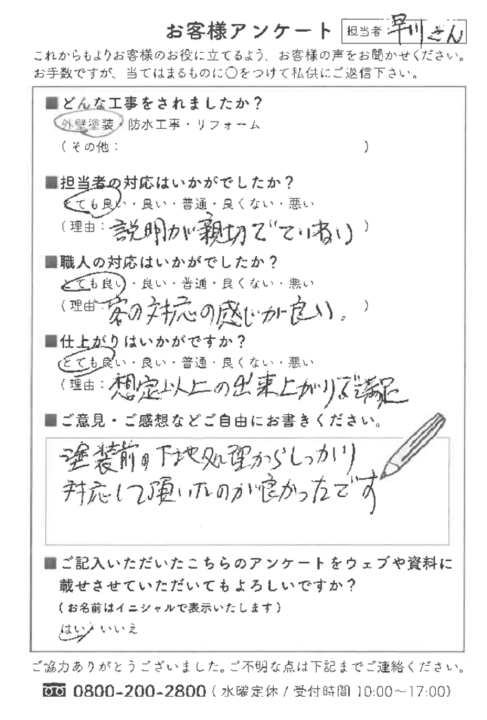 お客様アンケート 担当者 早川さん
これからもよりお客様のお役に立てるよう、お客様の声をお聞かせください。
お手数ですが、当てはまるものに○をつけて私供にご返信下さい。
■どんな工事をされましたか？
外壁塗装・防水工事・リフォーム
（その他：　　　　）
■担当者の対応はいかがでしたか？
とても良い・良い・普通・良くない・悪い
（理由：説明が親切でていねい）
■職人の対応はいかがでしたか？
とても良い・良い・普通・良くない・悪い
（理由：客の対応の感じが良い。）
■仕上がりはいかがですか？
とても良い・良い・普通・良くない・悪い
（理由：想定以上の出来上がりで満足
■ご意見・ご感想などご自由にお書きください。
塗装前の下地処理からしっかり
対応して頂いたのが良かったです
■ご記入いただいたこちらのアンケートをウェブや資料に
載せさせていただいてもよろしいですか？
（お名前はイニシャルで表示いたします）
はい・いいえ
ご協力ありがとうございました。ご不明な点は下記までご連絡ください。
0800-200-2800（水曜定休 / 受付時間 10:00〜17:00）